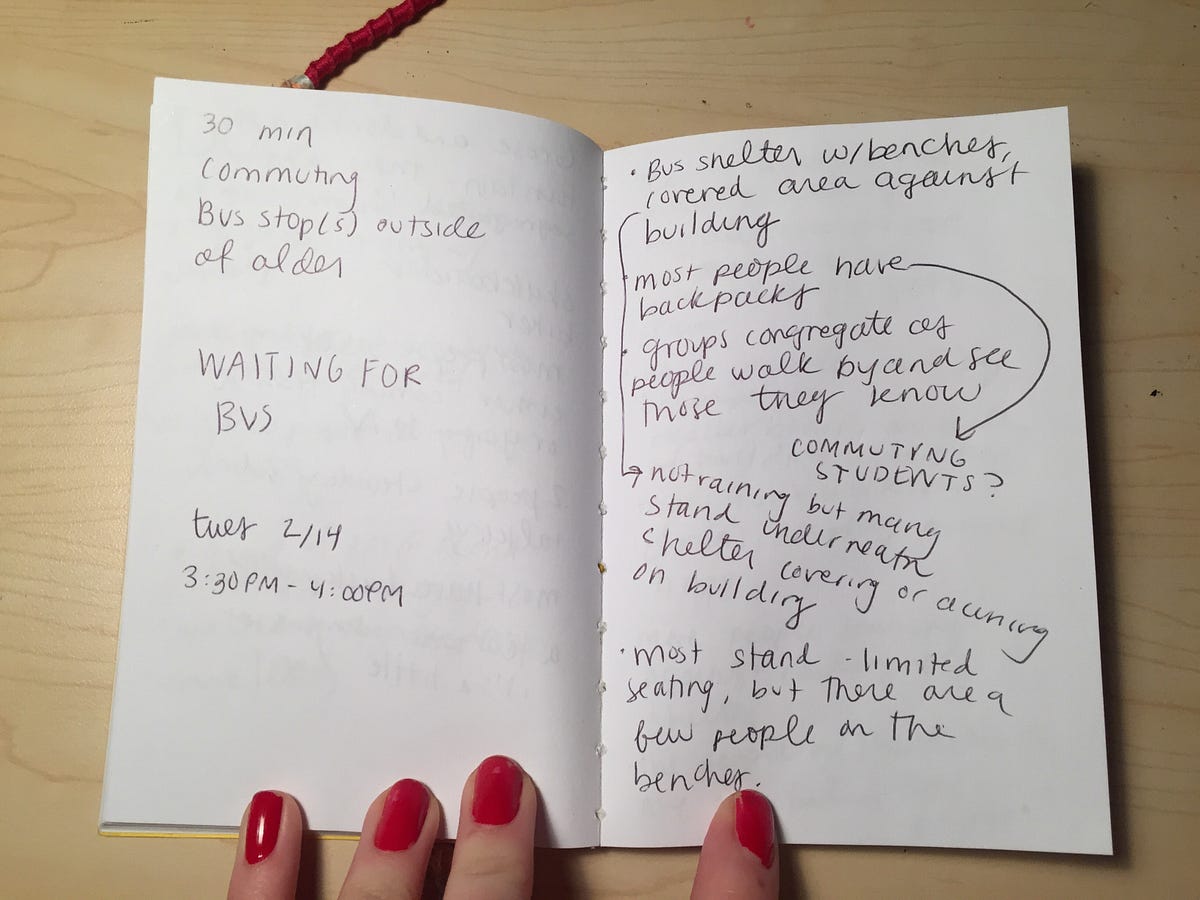 30 min
Commuting
Bus stop(s) outside
of alder
WAITING FOR
BUS
tues 2/14
3:30PM - 4:00PM
• Bus shelter w/benches,
covered area against
building
• most people have
backpacks
• groups congregate as
people walk by and see
those they know
COMMUTING
STUDENTS?
→ not raining but many
stand underneath
shelter covering or awning
on building
• most stand - limited
seating, but there are a
few people on the
benches.